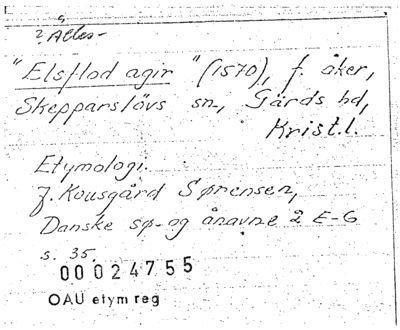 ? Älles-
"Elsflod agir" (1570), f. åker,
Skepparslövs sn, Gärds hd,
Krist.l.
Etymologi.
J. Kousgård Sørensen,
Danske sø- og ånavne 2 E-G
s. 35.
00024755
OAU etym reg